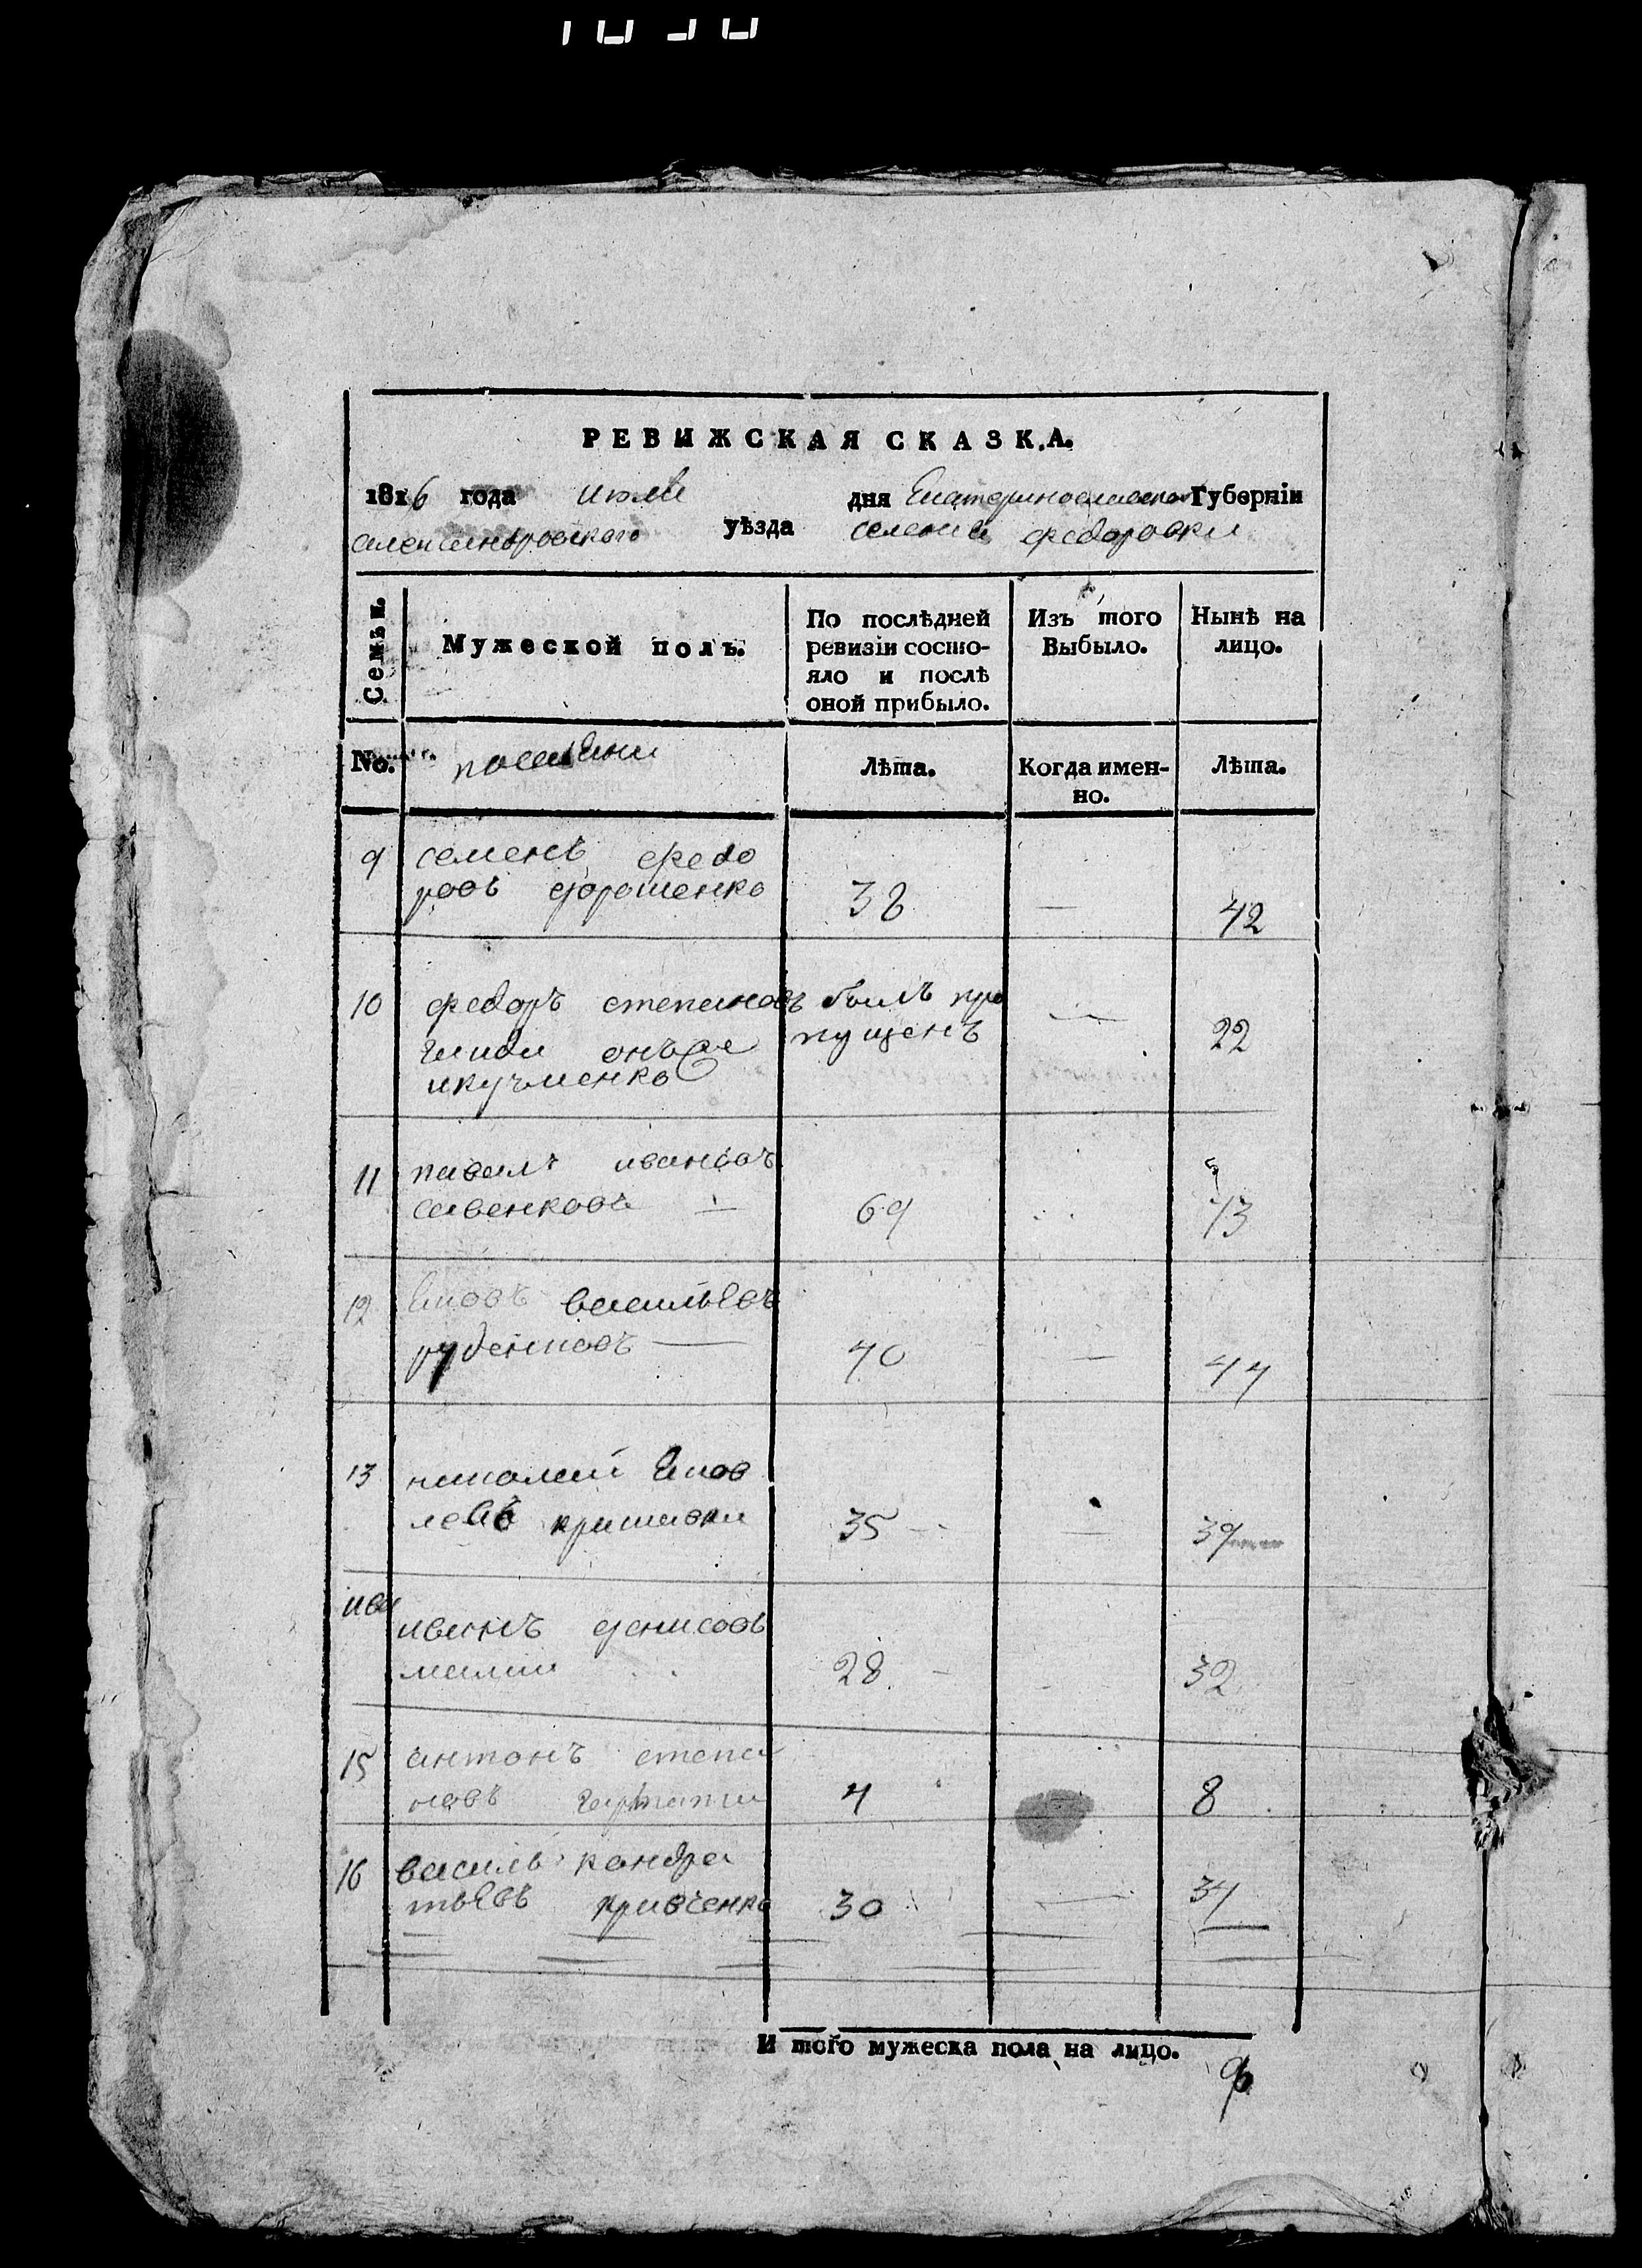 РЕВИЖСКАЯ СКАЗКА.
1816 года июля дня Екатеринославской Губерніи
александровского уѣзда селения федоровки
Семьи. Мужеской полъ. По послѣдней ревизіи состояло и послѣ оной прибыло. Изъ того Выбыло. Нынѣ на лицо.
No. Лѣта. Когда именно. Лѣта.
9 семенъ федо
ровъ дорошенко 38 — 42
10 федоръ степановъ былъ про
онъ же пущенъ — 22
11 павелъ ивановъ
савенковъ — 69 73
12 Яковъ васильевъ
руденковъ — 40 — 44
13 николай Яков
левъ 35 — 39
ива
иванъ денисовъ
малий 28 32
15 антонъ степа
новъ 4 8
16 василь кондра
тьевъ кривченко 30 — 34
И того мужеска пола на лицо.